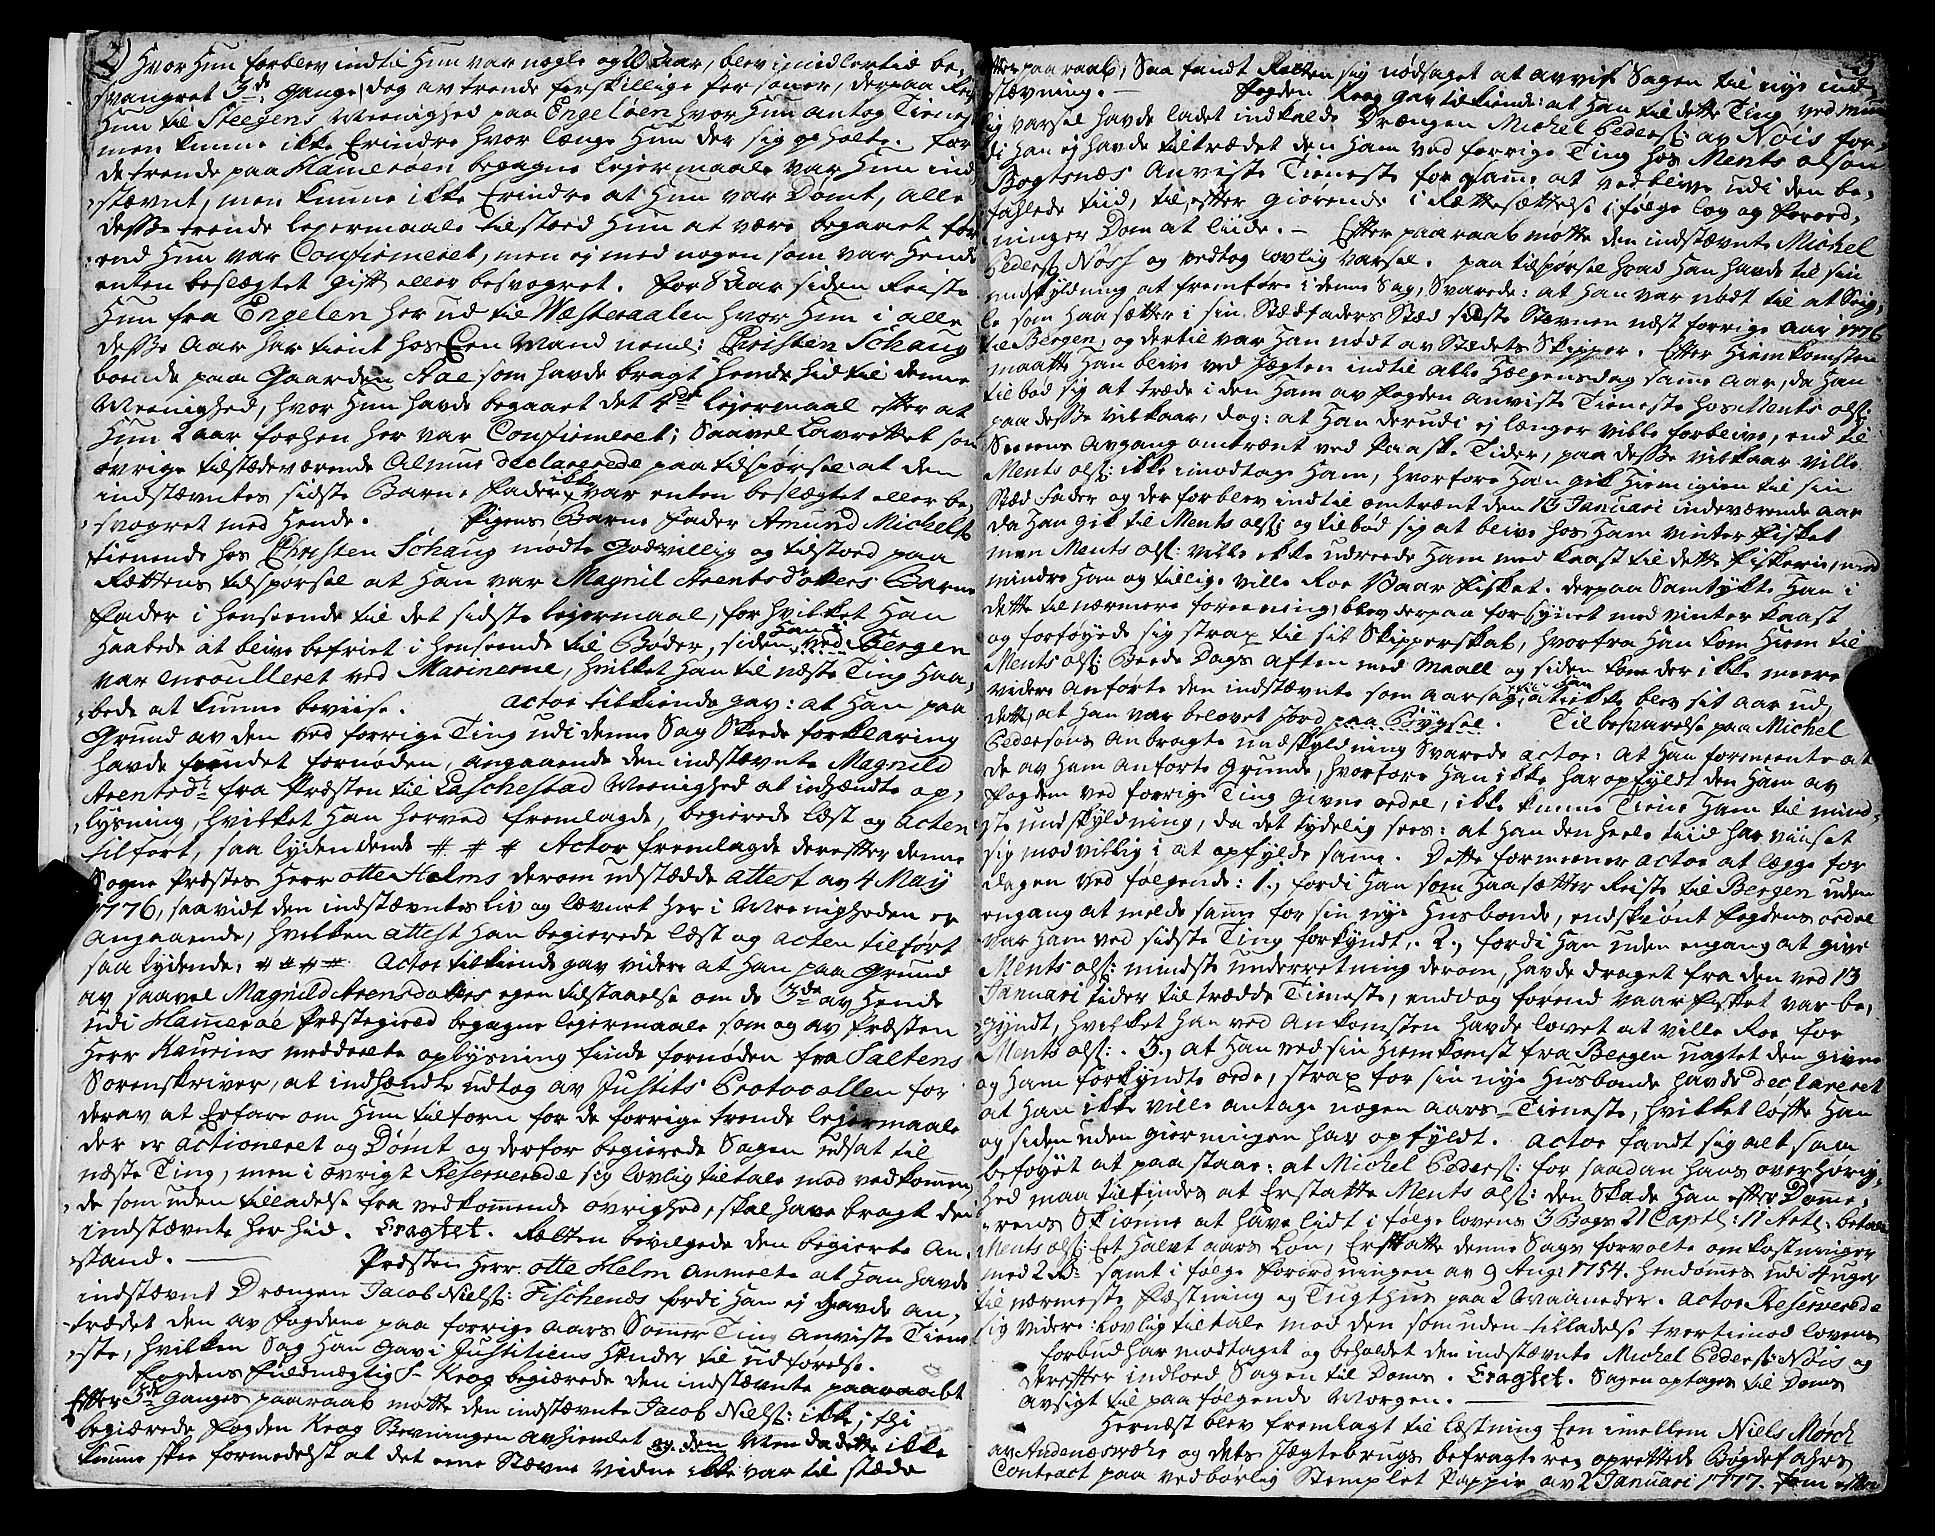 2) Hvor Hun forblev indtil Hun var nogle og 20 Aar, blev imidlertid be-
svangret 3de Gange, dog av trende forskillige Personer, derpaa Reiste
Hun til Steegens Meenighed paa Engelöen hvor Hun antog Tieneste
men kunne ikke Erindre hvor længe Hun der sig opholte. For
de trende paa Hamerøen begagne leyermaale var Hun ind-
stævnt, men kunne ikke Erindre at Hun var Dømt, alle
desse trende leyermaale tilstoed Hun at være begaaet før-
end Hun var Confirmeret, men ej med nogen som var Hende
enten beslægtet gift eller besvogret. For 8 Aar siden Reiste
Hun fra Engelen her ud til Westeraalen hvor Hun i alle
desse Aar har tient hos Een Mand neml: Christen Schaug
boende paa Gaarden Aae som havde bragt Hende hid til denne
Meenighed, hvor Hun havde begaaet det 4de leyermaal efter at
Hun 2 aar forhen her var Confirmeret; Saavel Lavrettet som
övrige tilstædeværende Almue declarerede paa tilspørsel at den
indstævntes sidste Barne Fader ikke var enten beslægtet eller be-
svogret med Hende. Pigens Barne Fader Amund Michels:
tienende hos Christen Schaug mødte Godvillig og tilstoed paa
Rættens tilspørsel at Han var Magnil Arentsdøters Barne
Fader i henseende til det sidste leyermaal, for hvilket Han
Haabede at blive befriet i henseende til Bøder, siden Han ved Bergen
var enroulleret ved Marinerne, hvilket Han til næste Ting Haa-
bede at kunne beviise. Actor tilkiende gav: at Han paa
Grund av den ved forrige Ting udi denne Sag Skeede forklaring
havde fundet fornøden, angaaende den indstævnte Magnild
Arentsd: fra Præsten til Laschestad Meenighed at indhændte op-
lysning, hvilket Han herved fremlagde, begierede læst og Acten
tilført, saa lydendende # # # Actor fremlagde derefter denne
Sogne Præstes Herr Otte Helms derom udstædde Attest av 4 May
1776, saavidt den indstævntes liv og lævnet her i Meenigheden er
angaaende, hvilken Attest Han begierede læst og acten tilført
saa lydende. # # # # Actor tilkiende gav videre at Han paa Grund
av saavel Magnild Arensdøters egen tilstaaelse om de 3de av Hende
udi Hamerøe Præstegield begagne leyermaale som og av Præsten
Herr Kaurins meddeelte oplysning finde fornøden fra Saltens
Sorenskriver, at indhændte udtog av Justits Protocollen for
derav at Erfare om Hun tilforn for de forrige trende leyermaale
der er actioneret og Dømt og derfor begierede Sagen udsat til
næste Ting, men i øvrigt Reserverede sig lovlig tiltale mod vedkommen-
de som uden tilladelse fra vedkommende övrighed, skal have bragt den
indstævnte her hid. Eragtet. Rætten bevilgede den begierte An-
stand. Præsten Herr Otte Helm anmeldte at Han havde
indstævnt Drængen Jacob Niels: Fischenæs fordi Han ej havde an-
trædet den av Fogden paa forrige aars Sommer Ting anviste Tiene-
ste, hvilken Sag Han Gav i Justitiens Hænder til udførelse.
Fogdens Fuldmægtig S- Krog begiærede den indstævnte paaraabt
Efter 3de Ganges paaraab møtte den indstævnte Jacob Niels: ikke; thi
begiærede Fogden Krog Stevningen avhiemlet Men da dette ikke
kunne skee formedelst at det eene Stævne Vidne ikke var til stæde
efter paaraab, Saa fandt Rætten sig nødsaget at avvise Sagen til nye ind-
stævning. Fogden Krog Gav tilkiende: at Han til dette Ting ved mund-
lig varsel havde ladet indkalde Drængen Michel Peders: av Nöis for-
di Han ej havde tiltrædet den Ham ved forrige Ting hos Ments Olsen
Bogtsnæs Anviste Tieneste for samme at vedblive udi den be-
falede tiid, til, efter giørende i Rættesættelse i følge lov og Forord-
ninger Dom at liide. Efter paaraab møtte den indstævnte Michel
Peders: Nöis og vedtog lovlig Varsel. Paa tilspørsel hvad Han havde til sin
undskyldning at fremføre i denne Sag, Svarede: at Han var nødt til at Seig-
le som Haasætter i sin Stædfaders Stæd sidste Stevne næst forrige Aar 1776
til Bergen, og dertil var Han nødt av Stædets Skipper. Efter Hiemkomsten
maatte Han blive ved Jægten indtil Alle Hælgensdag samme Aar, da Han
tilbød sig at træde i den Ham av Fogden anviste Tieneste hos Ments Ols:
paa desse vilkaar, dog: at Han derudi ej længer ville forblive, end til
Sneens Avgang omtrænt ved Paaske Tider, paa desse vilkaar ville
Ments Ols: ikke imodtage Ham, hvorfore Han gik Hiem igien til sin
Stæd Fader og der forblev indtil omtrænt den 13 Januari indeværende aar
da Han gik til Ments Ols: og tilbød sig at blive hos Ham vinter Fisket
men Ments Ols: ville ikke udreede Ham med kaast til dette Fiskerie, med
mindre Han og tillige ville Roe Vaar Fisket. derpaa Samtykte Han i
dette til nærmere foreening, blev derpaa forsynet med vinter kaast
og forføyede sig strax til sit Skipperskab, hvorfra Han kom Hiem til
Ments Ols: Beede Dags Aften med Maall og siden kom der ikke meere
videre Anførte den indstævnte som Aarsag at Han ikke blev sit aar ud,
dette, at Han var belovet Jord paa Bygsel. Til besvarelse paa Michel
Pedersens Anbragte undskyldning Svarede Actor: at Han formeente at
de av Ham Anførte Grunde, hvorfore Han ikke har opfyldt den Ham av
Fogden ved forrige Ting givne ordre, ikke kunne Tiene Ham til mind-
ste undskyldning, da det tydelig sees: at Han den heele tiid har viiset
sig modvillig i at opfylde samme. Dette formeener Actor at lægge for
dagen ved følgende: 1., fordi Han som Haasætter Reiste til Bergen uden
engang at melde samme for sin nye Husbonde, endskiønt Fogdens ordre
var Ham ved sidste Ting forkyndt. 2., fordi Han uden engang at give
Ments Ols: mindste underretning derom, havde draget fra den ved 13
Januari tider tiltrædde Tieneste, enddog førend Vaar Fisket var be-
gyndt, hvilket Han ved Ankomsten havde lovet at ville Roe for
Ments Ols:. 3., at Han ved sin Hiemkomst fra Bergen uagtet den givne
og Ham forkyndte ordre, strax for sin nye Husbonde havde declareret
at Han ikke ville antage nogen Aars-Tieneste, hvilket løfte Han
og siden uden gierningen har opfyldt. Actor fandt sig alt saa
beføyet at paastaae: at Michel Peders: for saadan Hans overhørig-
hed maa tilfindes at Erstatte Ments Ols: den Skade Han efter Domme-
rens Skiønne at have lidt i følge lovens 3 Bogs 21 Captl: 11 Artl: betale
Ments Ols: Eet Halvt aars Løn, Erstatte denne Sags forvolte omkostninger
med 2 Rd: samt i følge Forordningen av 9 Aug: 1754. hendømmes udi Auger
til nærmeste Fæstning og Tugthus paa 2 Maaneder. Actor Reserverede
sig videre: Lovlig tiltale mod den som uden tilladelse tvertimod lovens
forbud har modtaget og beholdet den indstævnte Michel Peders: Nöis og
derefter indloed Sagen til Doms. Eragtet. Sagen optages til Doms
Avsigt til paa følgende Morgen.
Hernæst blev fremlagt til læstning Een imellem Niels Mörch
av Andenæsvæhr og dets Jægtebrugs befragtere oprettede Bøgdefahrs
Contract paa vedbørlig Stemplet Pappir av 2 Januari 1777. som efter